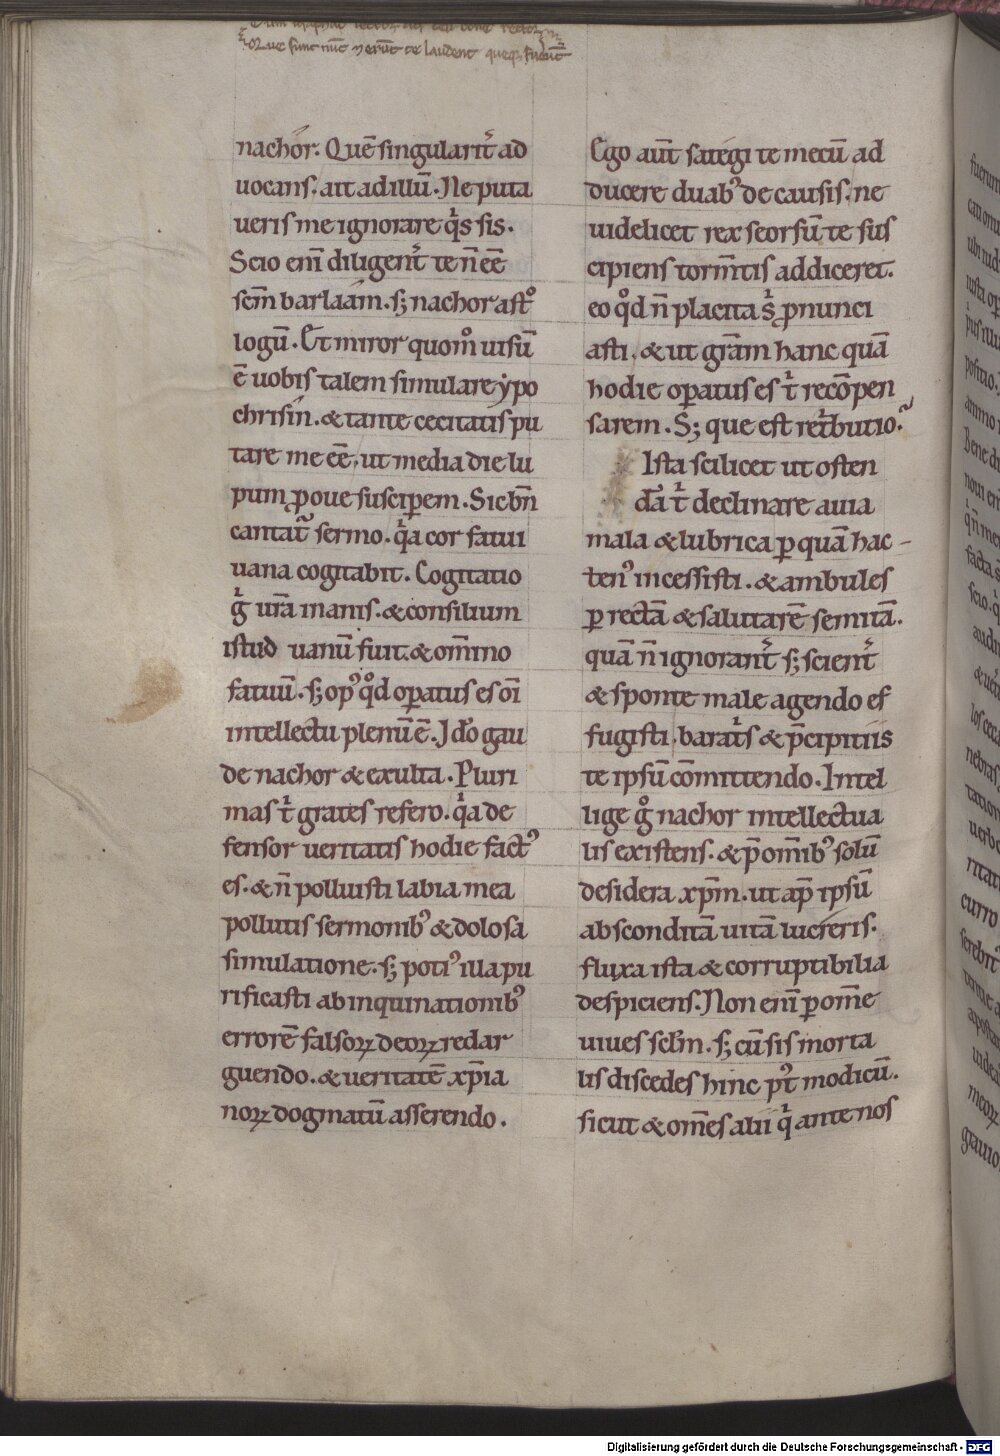 que sunt nunc ⁊ erunt te laudent queq; fuerunt
nachór. Quē singularit᷑ ad
uocans. ait ad illū. Ne puta
ueris me ignorare qͥs sis.
Scio eni̅ diligent᷑ te n̅ ee̅
sc̅m barlaám. sꝫ nachor astꝰ
logu̅. Et miror quomͦ uisu̅
e̅ uobis talem simulare ypo
chrisin̅. & tante cecitatis pu
tare me ee̅. ut media die lu
pum ꝓ oue susciꝑem. Sꝫ bn̅
cantat᷑ sermo. qͥa cor fatui
uana cogitabit. Cogitatio
gͥ ur̅a inanis. & consilium
istud uanu̅ fuit. & om̅ino
fatuu̅. sꝫ opꝰ qͦd oꝑatus es oi̅
intellectu plenu̅ e̅. Jdͦo gau
de nachor & exulta. Pluri
mas tͥ grates refero. qͥa de
fensor ueritatis hodie factꝰ
es. & n̅ polluisti labia mea
pollutis sermonibꝰ & dolosa
simulatione. sꝫ potiꝰ illa pu
rificasti ab inquinationibꝰ
errore̅ falsoꝝ deoꝝ redar
guendo. & ueritate̅ xp̅ia
noꝝ dogmatu̅ asserendo.
Ego au̅t sategi te mecu̅ ad
ducere duabꝰ de causis. ne
uidelicet rex seorsu̅ te sus
cipiens torm̅tis addiceret.
eo qͦd n̅ placita sͥ ꝓnunci
asti. & ut gr̅am hanc qua̅
hodie oꝑatus es tͥ reco̅pen
sarem. Sꝫ que est ret͛butio.
Ista scilicet ut osten
da̅ tͥ declinare auia
mala & lubrica ꝑ qua̅ hac-
tenꝰ incessisti. & ambules
ꝑ recta̅ & salutare̅ semita̅.
qua̅ n̅ ignorant᷑ sꝫ scient᷑
& sponte male agendo ef
fugisti. barat͛s & p̅cipitiis
te ipsu̅ co̅mittendo. Intel
lige gͦ nachor intellectua
lis existens. & p̅ om̅ibꝰ solu̅
desidera xp̅m. ut ap̅ ipsu̅
absconditā uitā lucreris.
fluxa ista & corruptibilia
despiciens. Non eni̅ ꝑ om̅e
uiues sc̅lm. sꝫ cu̅ sis morta
lis discedes hinc p᷑t modicu̅.
sicut & om̅es alii qͥ ante nos
Digitalisierung gefördert durch die Deutsche Forschungsgemeinschaft - DFG